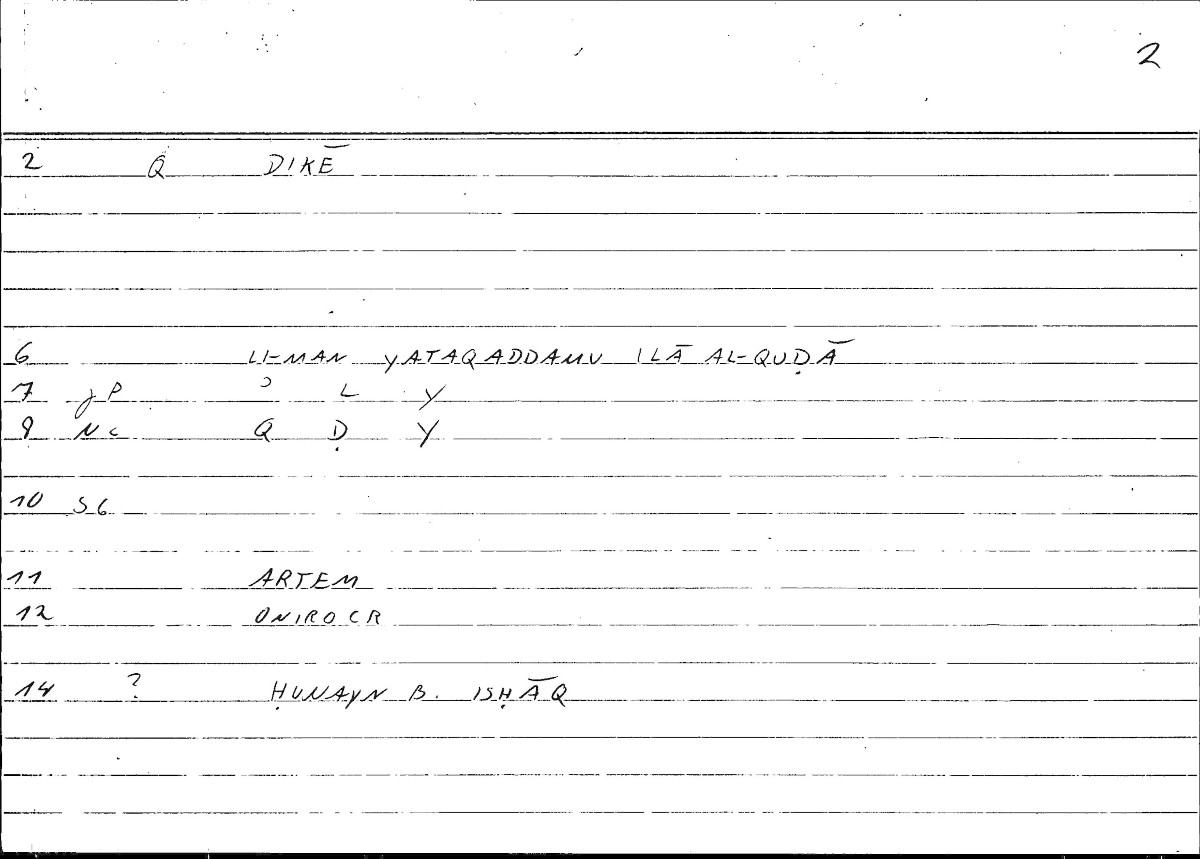 2
2 Q DIKĒ
6 LI-MAN YATAQADDAMU ILĀ AL-QUḌĀ
7 JP ʾ L Y
8 NC Q Ḍ Y
10 SG
11 ARTEM
12 ONIROCR
14 ? ḤUNAYN B. ISḤĀQ